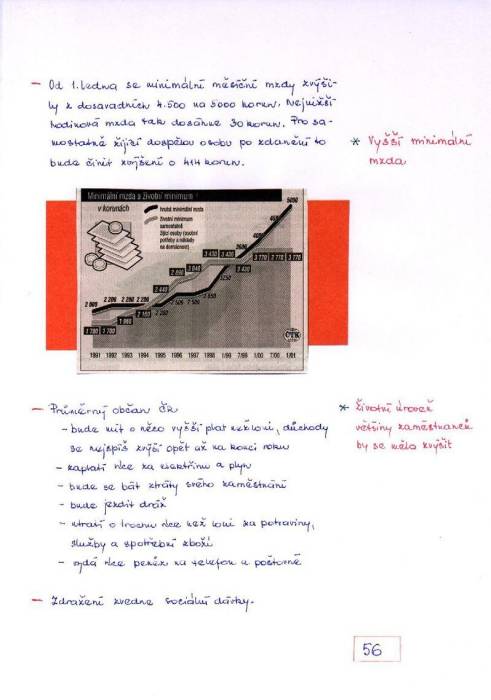 – Od 1. ledna se minimální měsíční mzdy zvýši-
ly z dosavadních 4.500 na 5000 korun. Nejnižší
hodinová mzda tak dosáhne 30 korun. Pro sa-
mostatně žijící dospělou osobu po zdanění to
bude činit zvýšení o 414 korun.
* Vyšší minimální
mzda
Minimální mzda a životní minimum
v korunách
hrubá minimální mzda
životní minimum
samostatně
žijící osoby (osobní
potřeby a náklady
na domácnost)
5000
4500
4000
3600
3 430 3 430
3 770 3 770 3 770
2 890 3 040
3 430
3250
2 440
2 000 2 200 2 200 2 200
2 500 2 500 2 650
1 780 1 780 1 960 2 160 2 200
ČTK
1991 1992 1993 1994 1995 1996 1997 1998 1999 1/00 7/00 1/01
– Průměrný občan ČR
– bude mít o něco vyšší plat než loni, důchody
se nejspíš zvýší opět až na konci roku
– zaplatí více za elektřinu a plyn
– bude se bát ztráty svého zaměstnání
– bude jezdit dráž
– utratí o trochu více než loni za potraviny,
služby a spotřební zboží
– vydá více peněz za telefon a poštovné
* Životní úroveň
většiny zaměstnanců
by se měla zvýšit
– Zdražení zvedne sociální dávky.
56